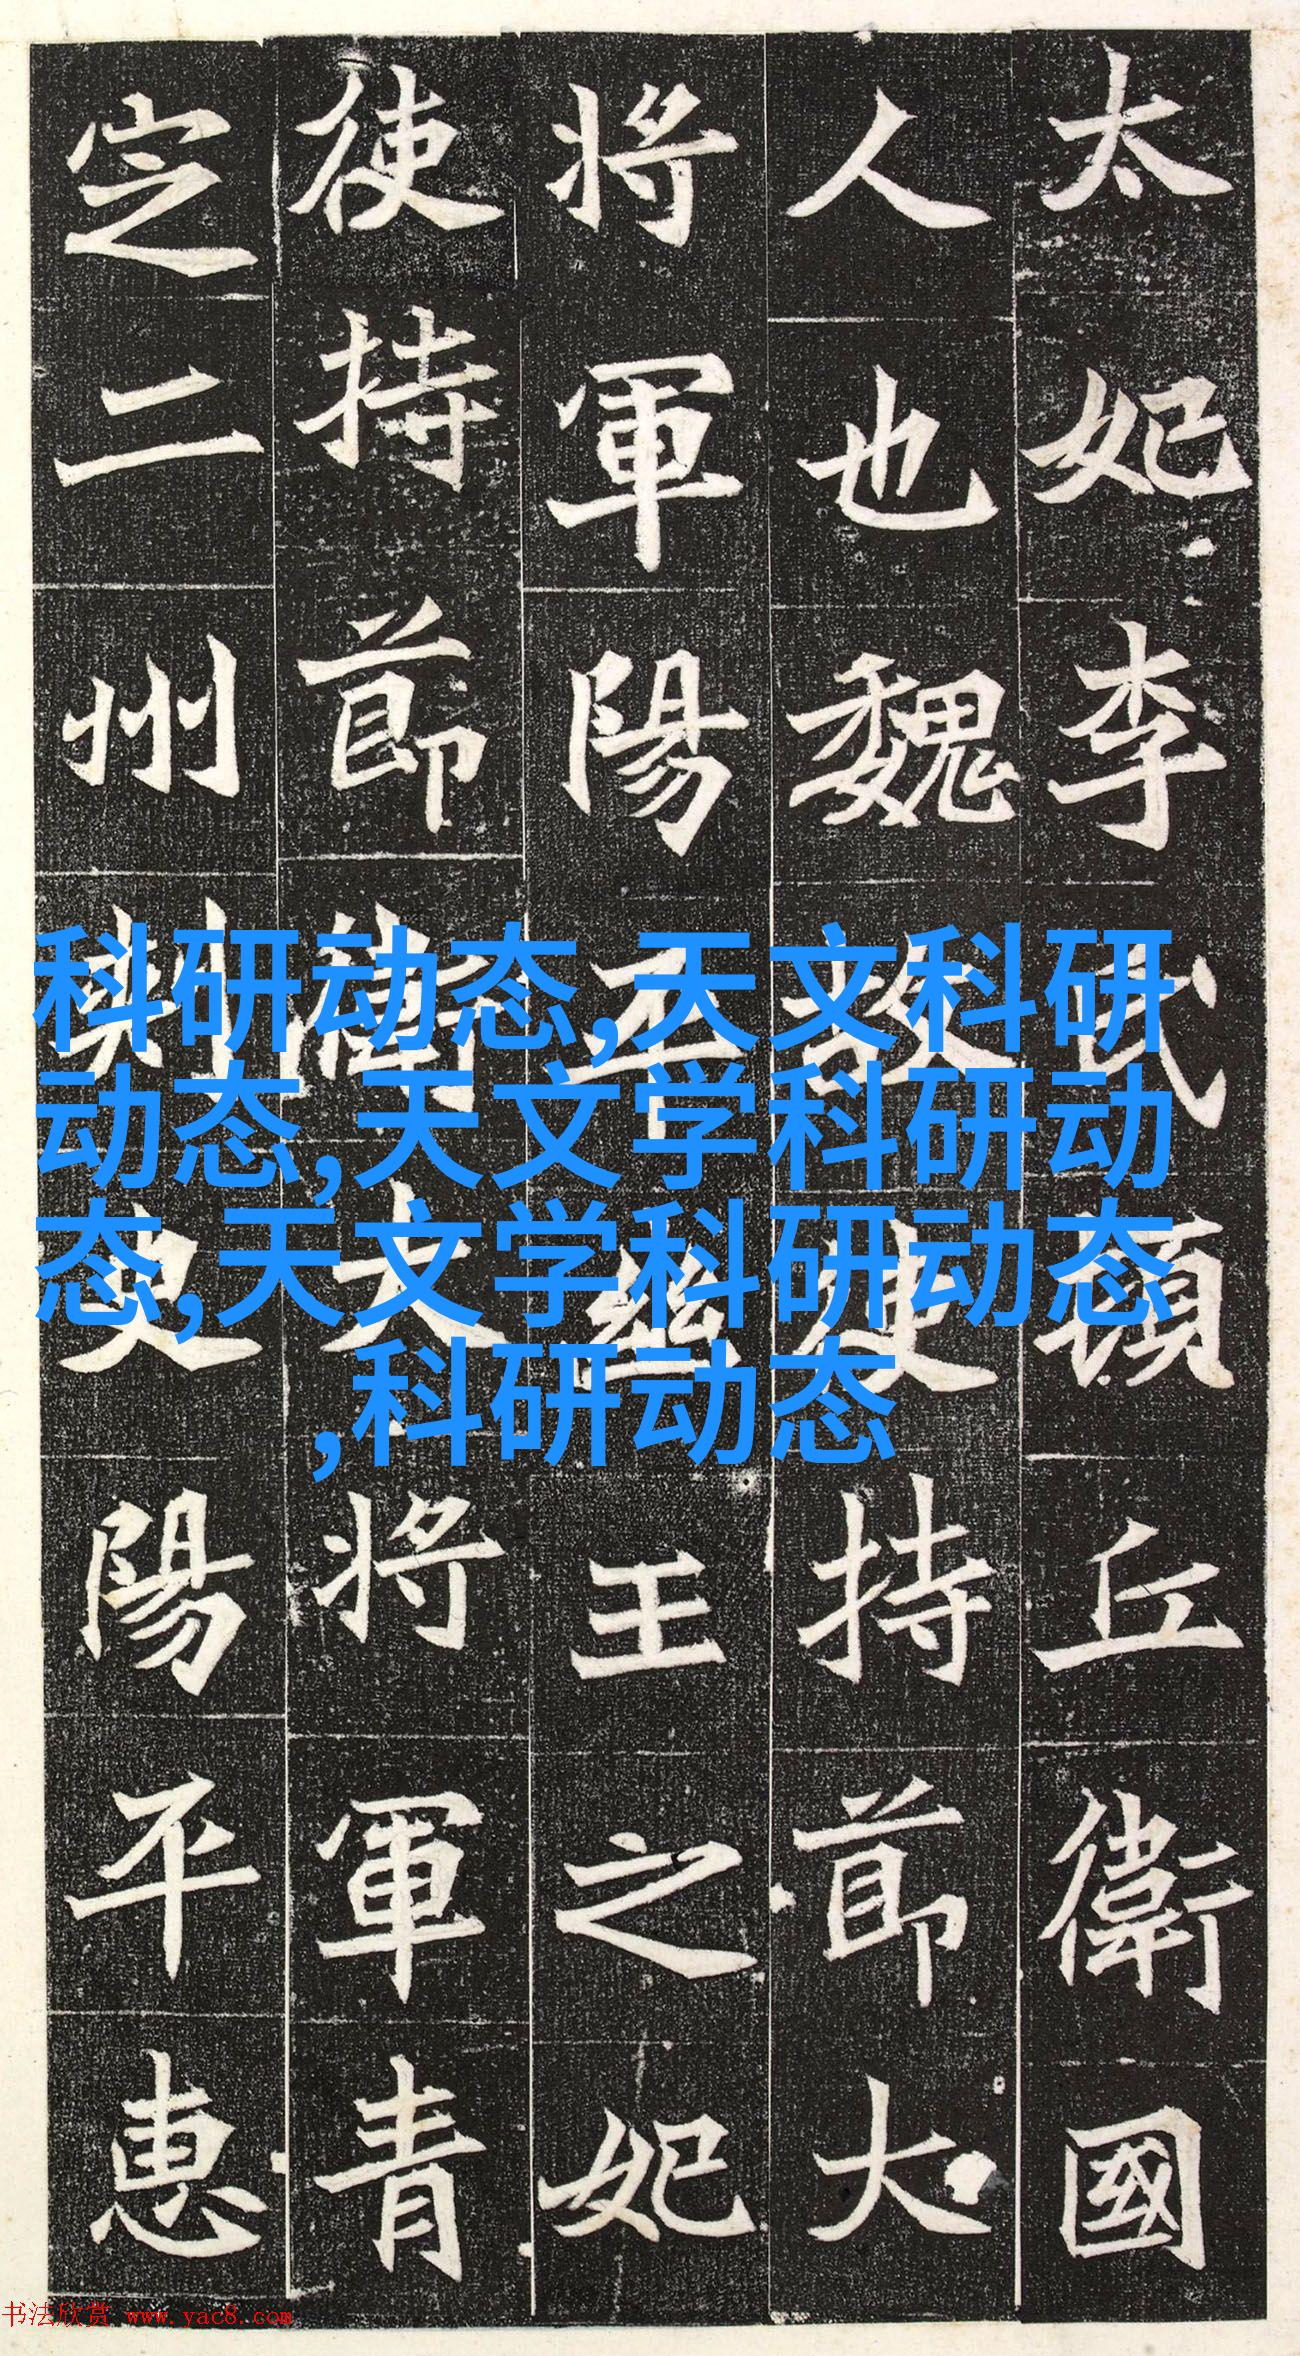 太妃李氏頓丘衛國
人也魏故使持節大
將軍陽平幽王之妃
使持節衛大將軍青
定二州刾史陽平惠
科研动态,天文科研
动态,天文学科研动
态,天文学科研动态
,科研动态
书法欣赏 www.yac8.com